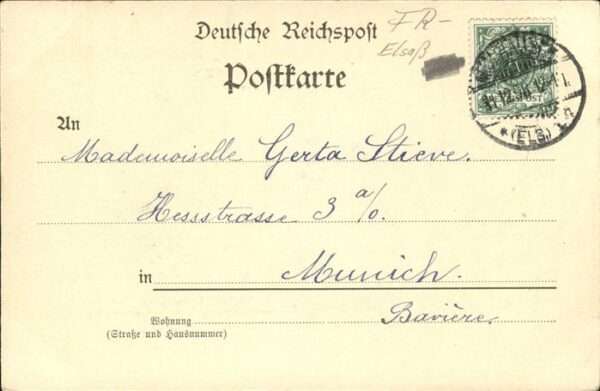 Deutsche Reichspost
FR-
Elsaß
Postkarte
(ELS)
An
Mademoiselle Gerta Stieve.
Hessstrasse 3 a/0.
in Munich.
Bavière
Wohnung
(Straße und Hausnummer)